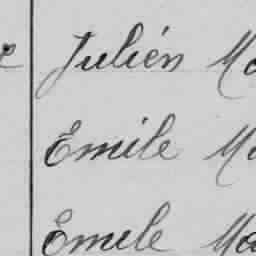 Julién Ma
Emile Ma
Emele Ma